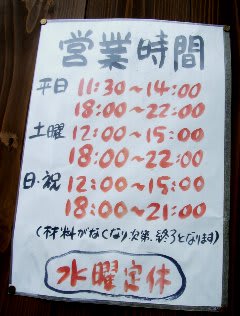 営業時間
平日 11:30〜14:00
18:00〜22:00
土曜 12:00〜15:00
18:00〜22:00
日・祝 12:00〜15:00
18:00〜21:00
(材料がなくなり次第、終了となります)
水曜定休